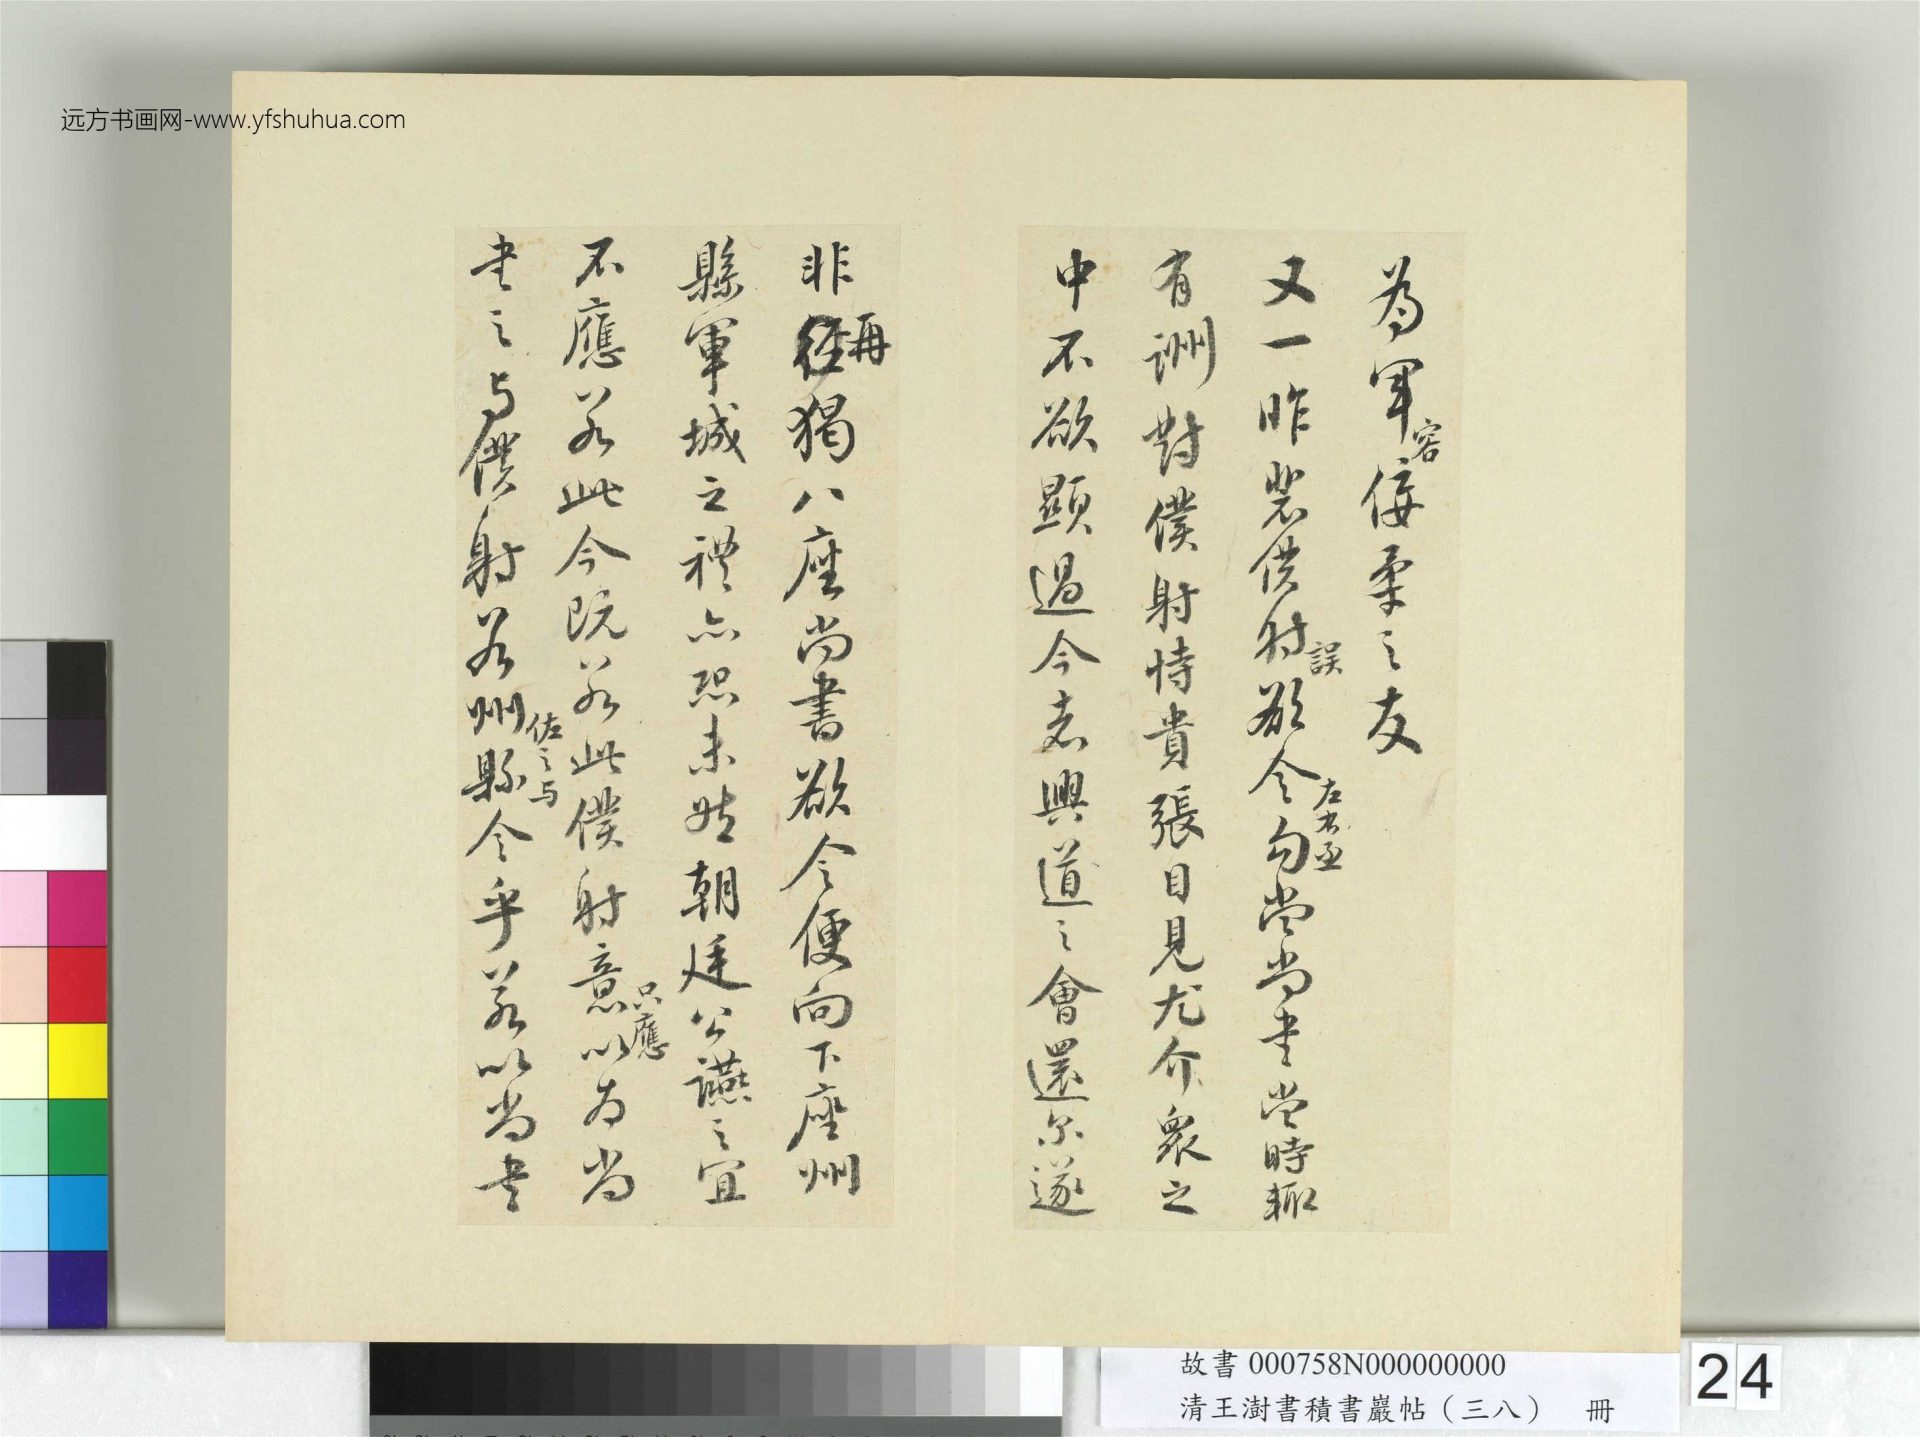 远方书画网-www.yfshuhua.com
為軍容佞柔之友
又一昨裴僕射誤欲令左右丞勾當尚書當時輒
有詶對僕射恃貴張目見尤介衆之
中不欲顯過今者興道之會還尔遂
非再猲八座尚書欲令便向下座州
縣軍城之禮亦恐未然朝廷公讌之宜
不應若此今既若此僕射意只應以为尚
書之与僕射若州佐之与縣令乎若以尚書
故書 000758N000000000
清王澍書積書巖帖（三八） 冊
24